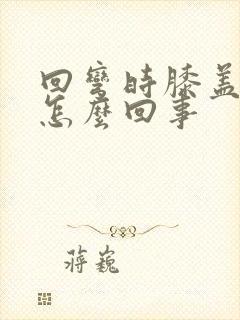 回彎時膝蓋
怎麼回事
蔣巍